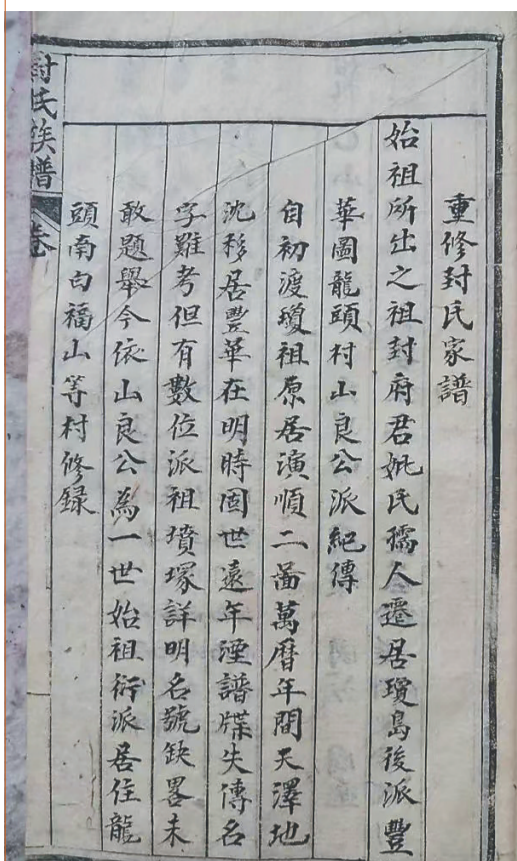 重修封氏家譜
始祖所出之祖封府君妣氏孺人遷居瓊島後派豐
華圖龍頭村山良公派紀傳
自初渡瓊祖原居演順二啚萬曆年間天澤地
沈移居豐華在明時因世遠年湮譜牒失傳名
字難考但有數位派祖墳塚詳明名號缺畧未
敢題舉今依山良公為一世始祖衍派居住龍
頭南白福山等村修録
封氏族譜
卷